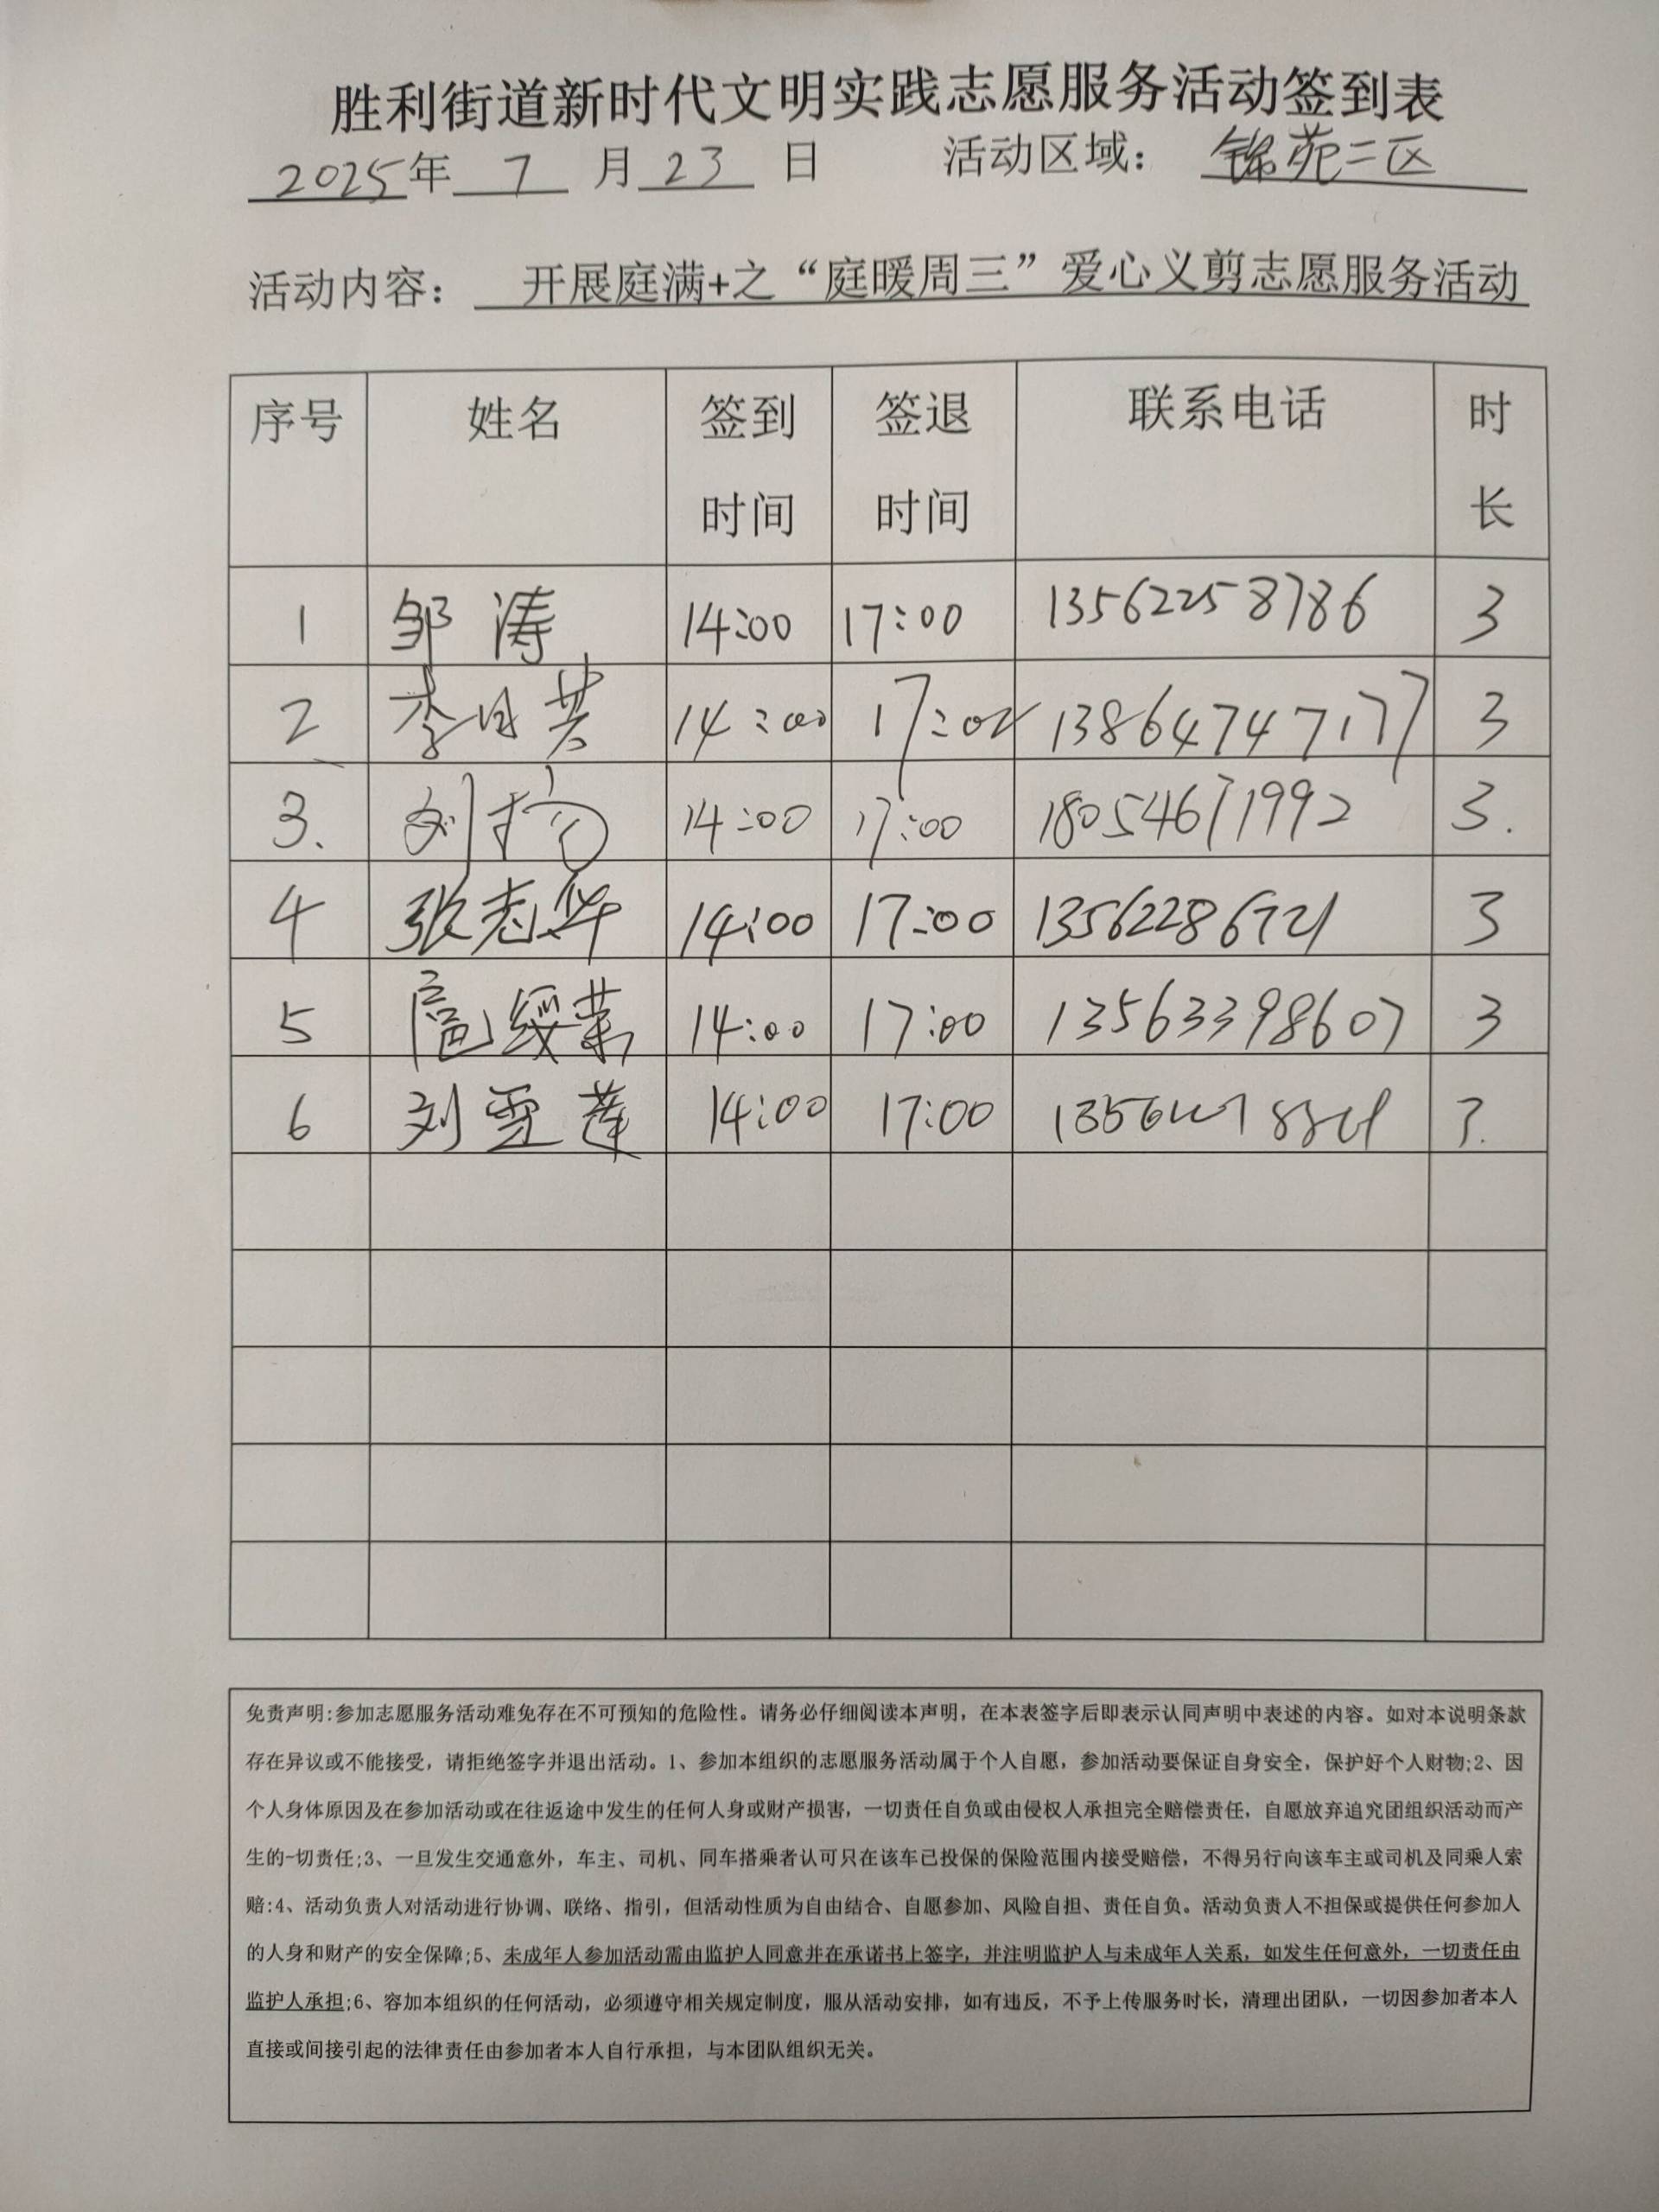 胜利街道新时代文明实践志愿服务活动签到表
2025年 7 月 23 日 活动区域： 锦苑二区
活动内容： 开展庭满+之“庭暖周三”爱心义剪志愿服务活动
序号 姓名 签到时间 签退时间 联系电话 时长
1 邹涛 14:00 17:00 13562258786 3
2 李日芸 14:00 17:00 13864747177 3
3. 刘 14:00 17:00 18054671992 3.
4 张志华 14:00 17:00 3
5 扈绥荣 14:00 17:00 13563398607 3
6 刘雪莲 14:00 17:00 3.
免责声明:参加志愿服务活动难免存在不可预知的危险性。请务必仔细阅读本声明，在本表签字后即表示认同声明中表述的内容。如对本说明条款
存在异议或不能接受，请拒绝签字并退出活动。1、参加本组织的志愿服务活动属于个人自愿，参加活动要保证自身安全，保护好个人财物;2、因
个人身体原因及在参加活动或在往返途中发生的任何人身或财产损害，一切责任自负或由侵权人承担完全赔偿责任，自愿放弃追究团组织活动而产
生的-切责任;3、一旦发生交通意外，车主、司机、同车搭乘者认可只在该车已投保的保险范围内接受赔偿，不得另行向该车主或司机及同乘人索
赔:4、活动负责人对活动进行协调、联络、指引，但活动性质为自由结合、自愿参加、风险自担、责任自负。活动负责人不担保或提供任何参加人
的人身和财产的安全保障;5、未成年人参加活动需由监护人同意并在承诺书上签字，并注明监护人与未成年人关系，如发生任何意外，一切责任由
监护人承担;6、容加本组织的任何活动，必须遵守相关规定制度，服从活动安排，如有违反，不予上传服务时长，清理出团队，一切因参加者本人
直接或间接引起的法律责任由参加者本人自行承担，与本团队组织无关。